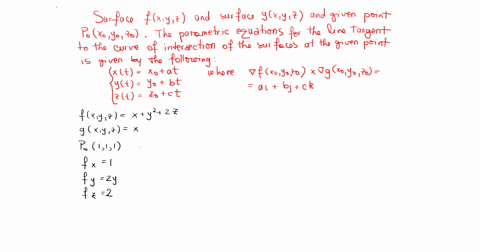 Surface f(x,y,z) and surface g(x,y,z) and given point
P₀(x₀,y₀,z₀). The parametric equations for the line tangent
to the curve of intersection of the surfaces at the given point
is given by the following:
{ x(t) = x₀+at where ∇f(x₀,y₀,z₀) × ∇g(x₀,y₀,z₀)=
{ y(t) = y₀+bt = ai + bj + ck
{ z(t) = z₀+ct
f(x,y,z) = x+y²+2z
g(x,y,z) = x
P₀ (1,1,1)
fx = 1
fy = 2y
fz = 2